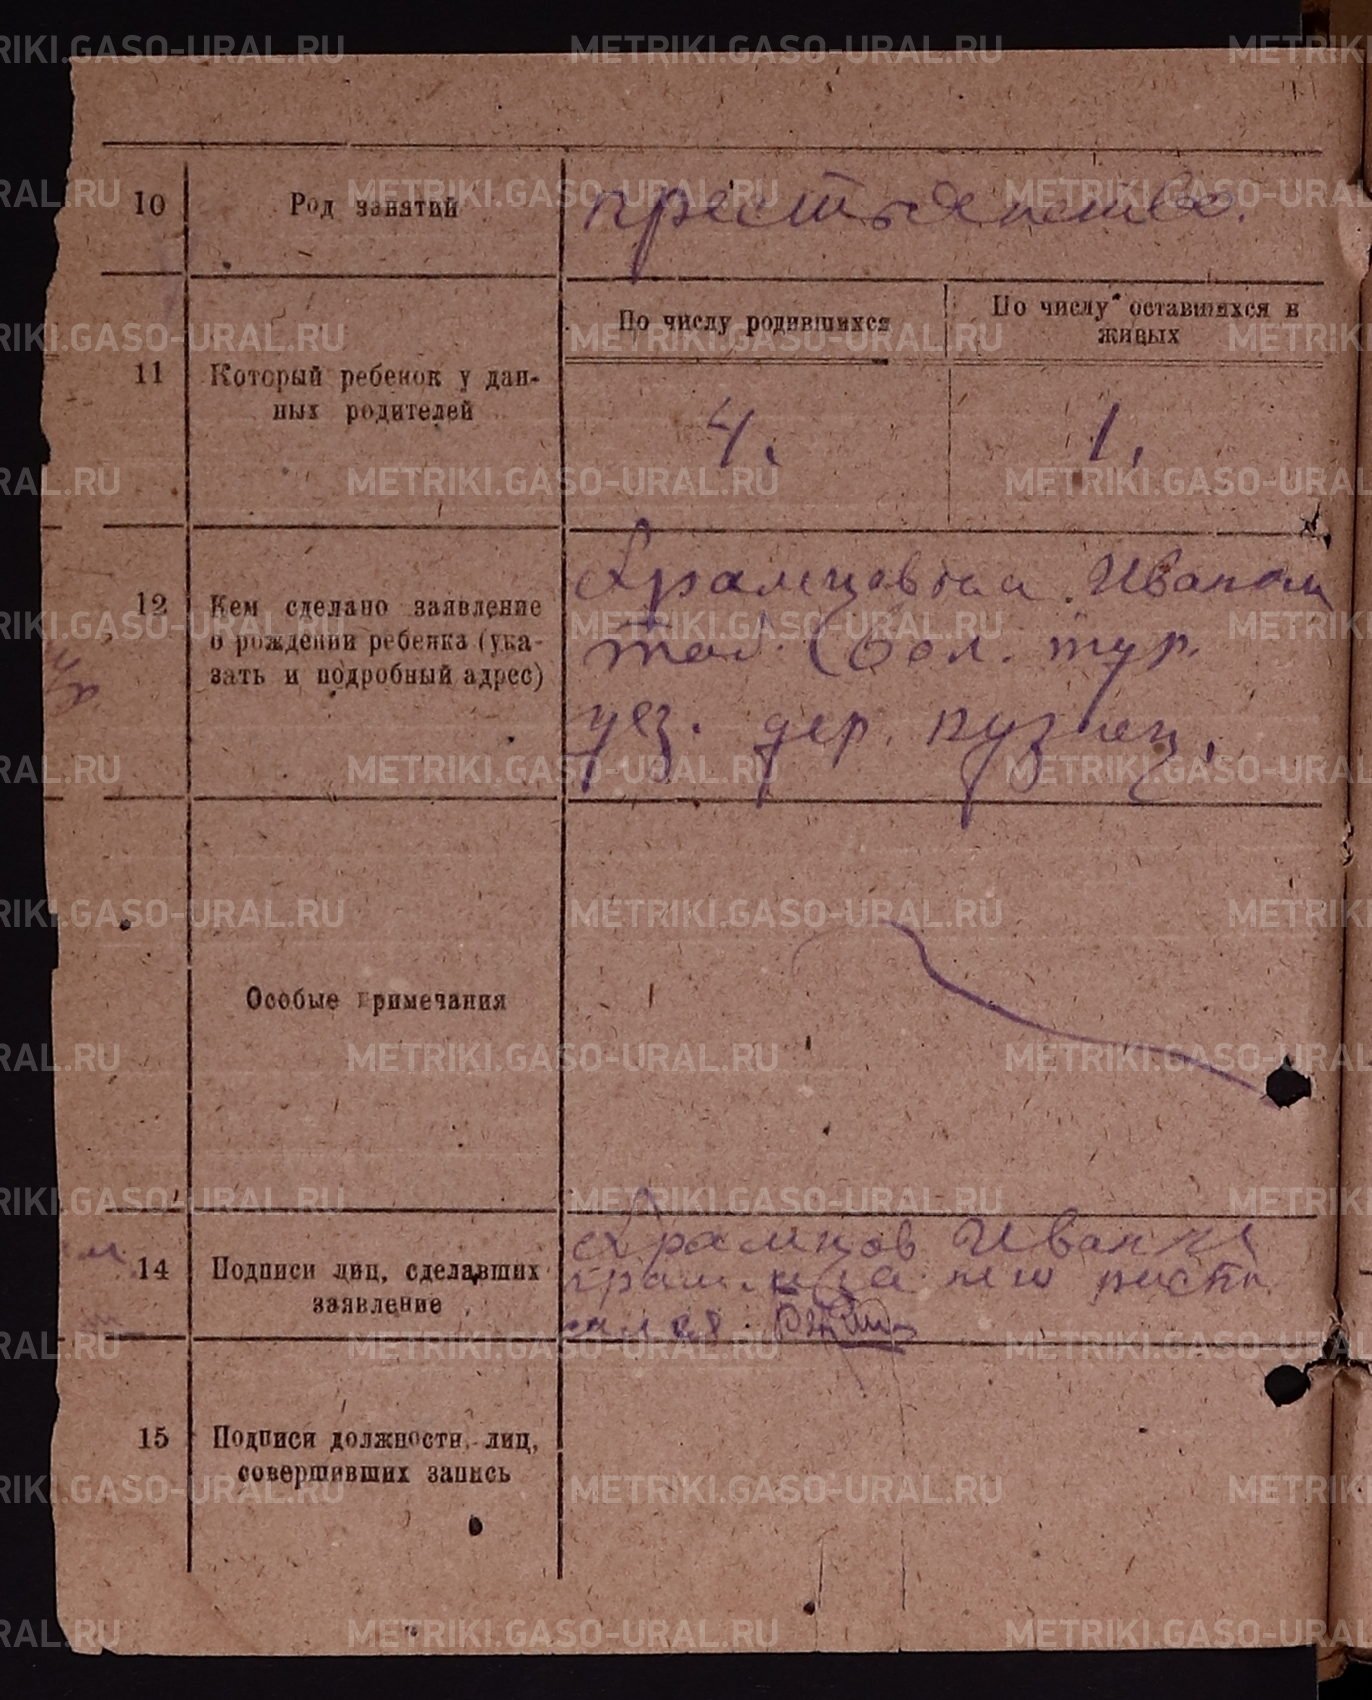 10 Род занятий крестьянство.
11 Который ребенок у дан-
ных родителей
По числу родившихся
По числу оставшихся в
живых
4. 1.
12 Кем сделано заявление
о рождении ребенка (ука-
зать и подробный адрес)
Храмцовым Иваном
тоб. Вол. тур.
уез. дер. кузнец.
Особые примечания
14 Подписи лиц, сделавших
заявление
Храмцов Иван
15 Подписи должностн. лиц,
совершивших запись
METRIKI.GASO-URAL.RU